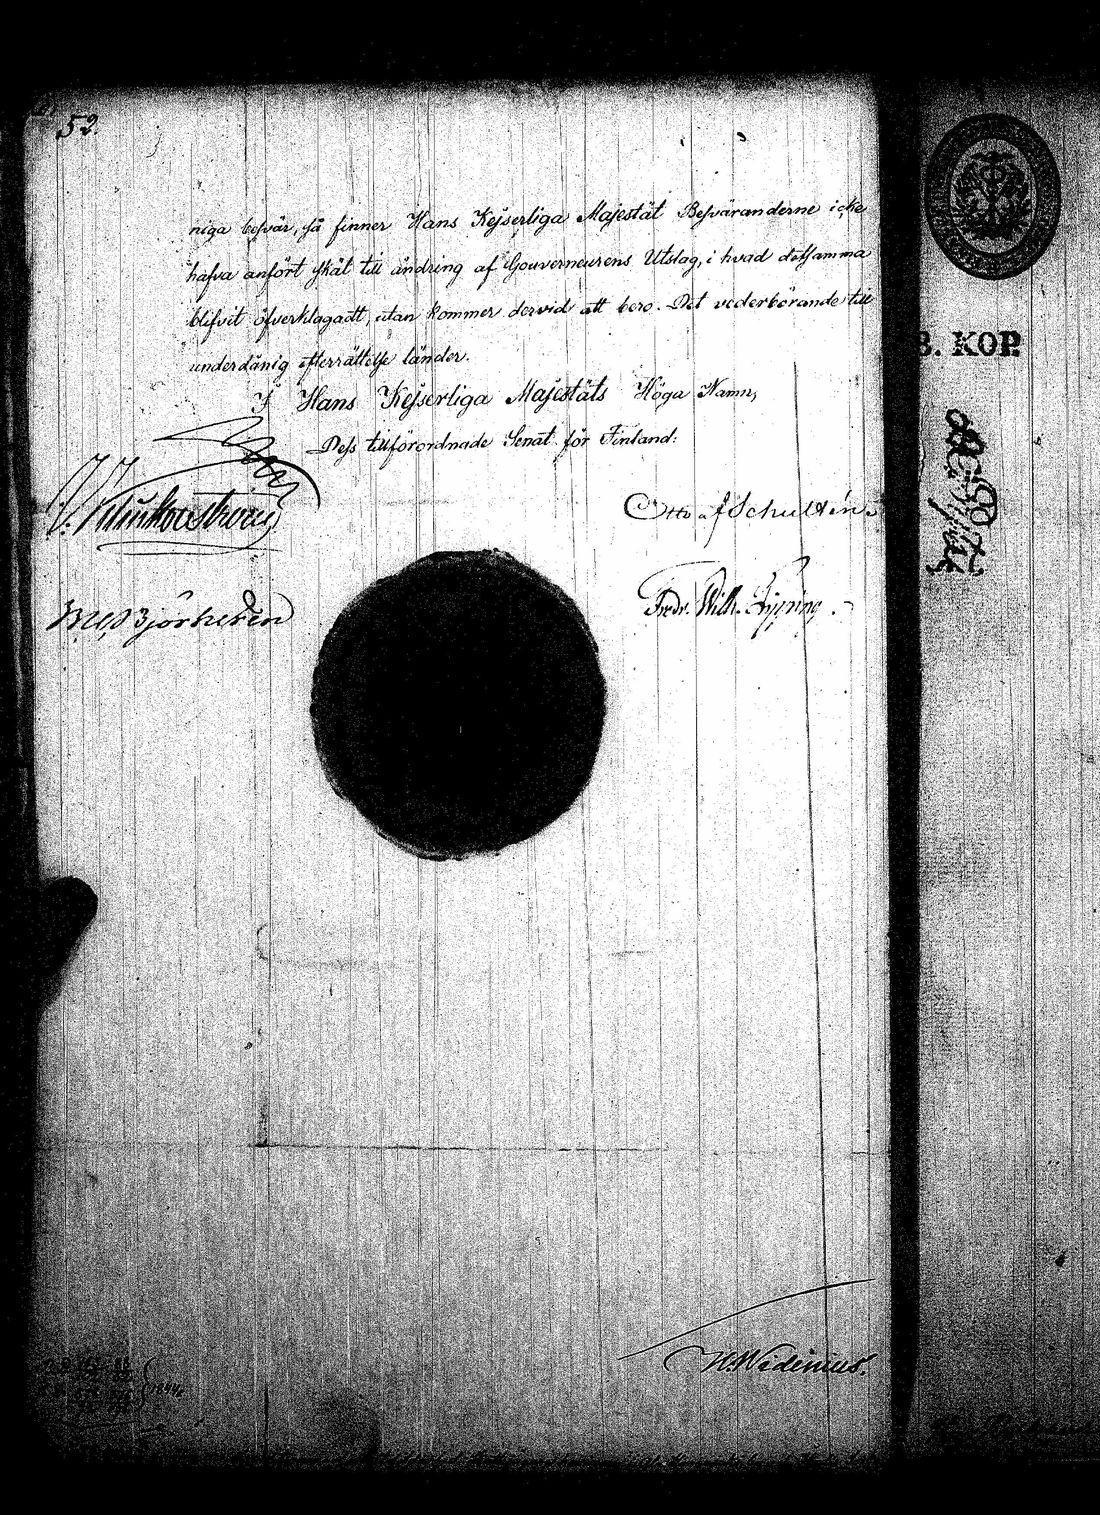 52.
niga besvär, så finner Hans Kejserliga Majestät Besväranderne icke
hafva anfört skäl till ändring af Gouverneurens Utslag, i hvad detsamma
blifvit öfverklagadt, utan kommer dervid att bero. Det vederbörande till
underdånig efterrättelse länder.
I Hans Kejserliga Majestäts Höga Namn,
Dess tillförordnade Senat för Finland:
Otto af Schultén.
Björkestén
Fredr. Wilh. Pipping.
H. Widenius.
1844
B. KOP.